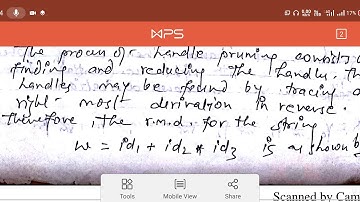 4G 5.80 KB/S 17%
WPS 2
The process of handle pruning consists
finding and reducing the handles. Th
handles may be found by tracing a
right-most derivation in reverse.
Therefore, the r.m.d. for the string
w = id1 + id2 * id3 is as shown b
Tools Mobile View Share
Scanned by Cam